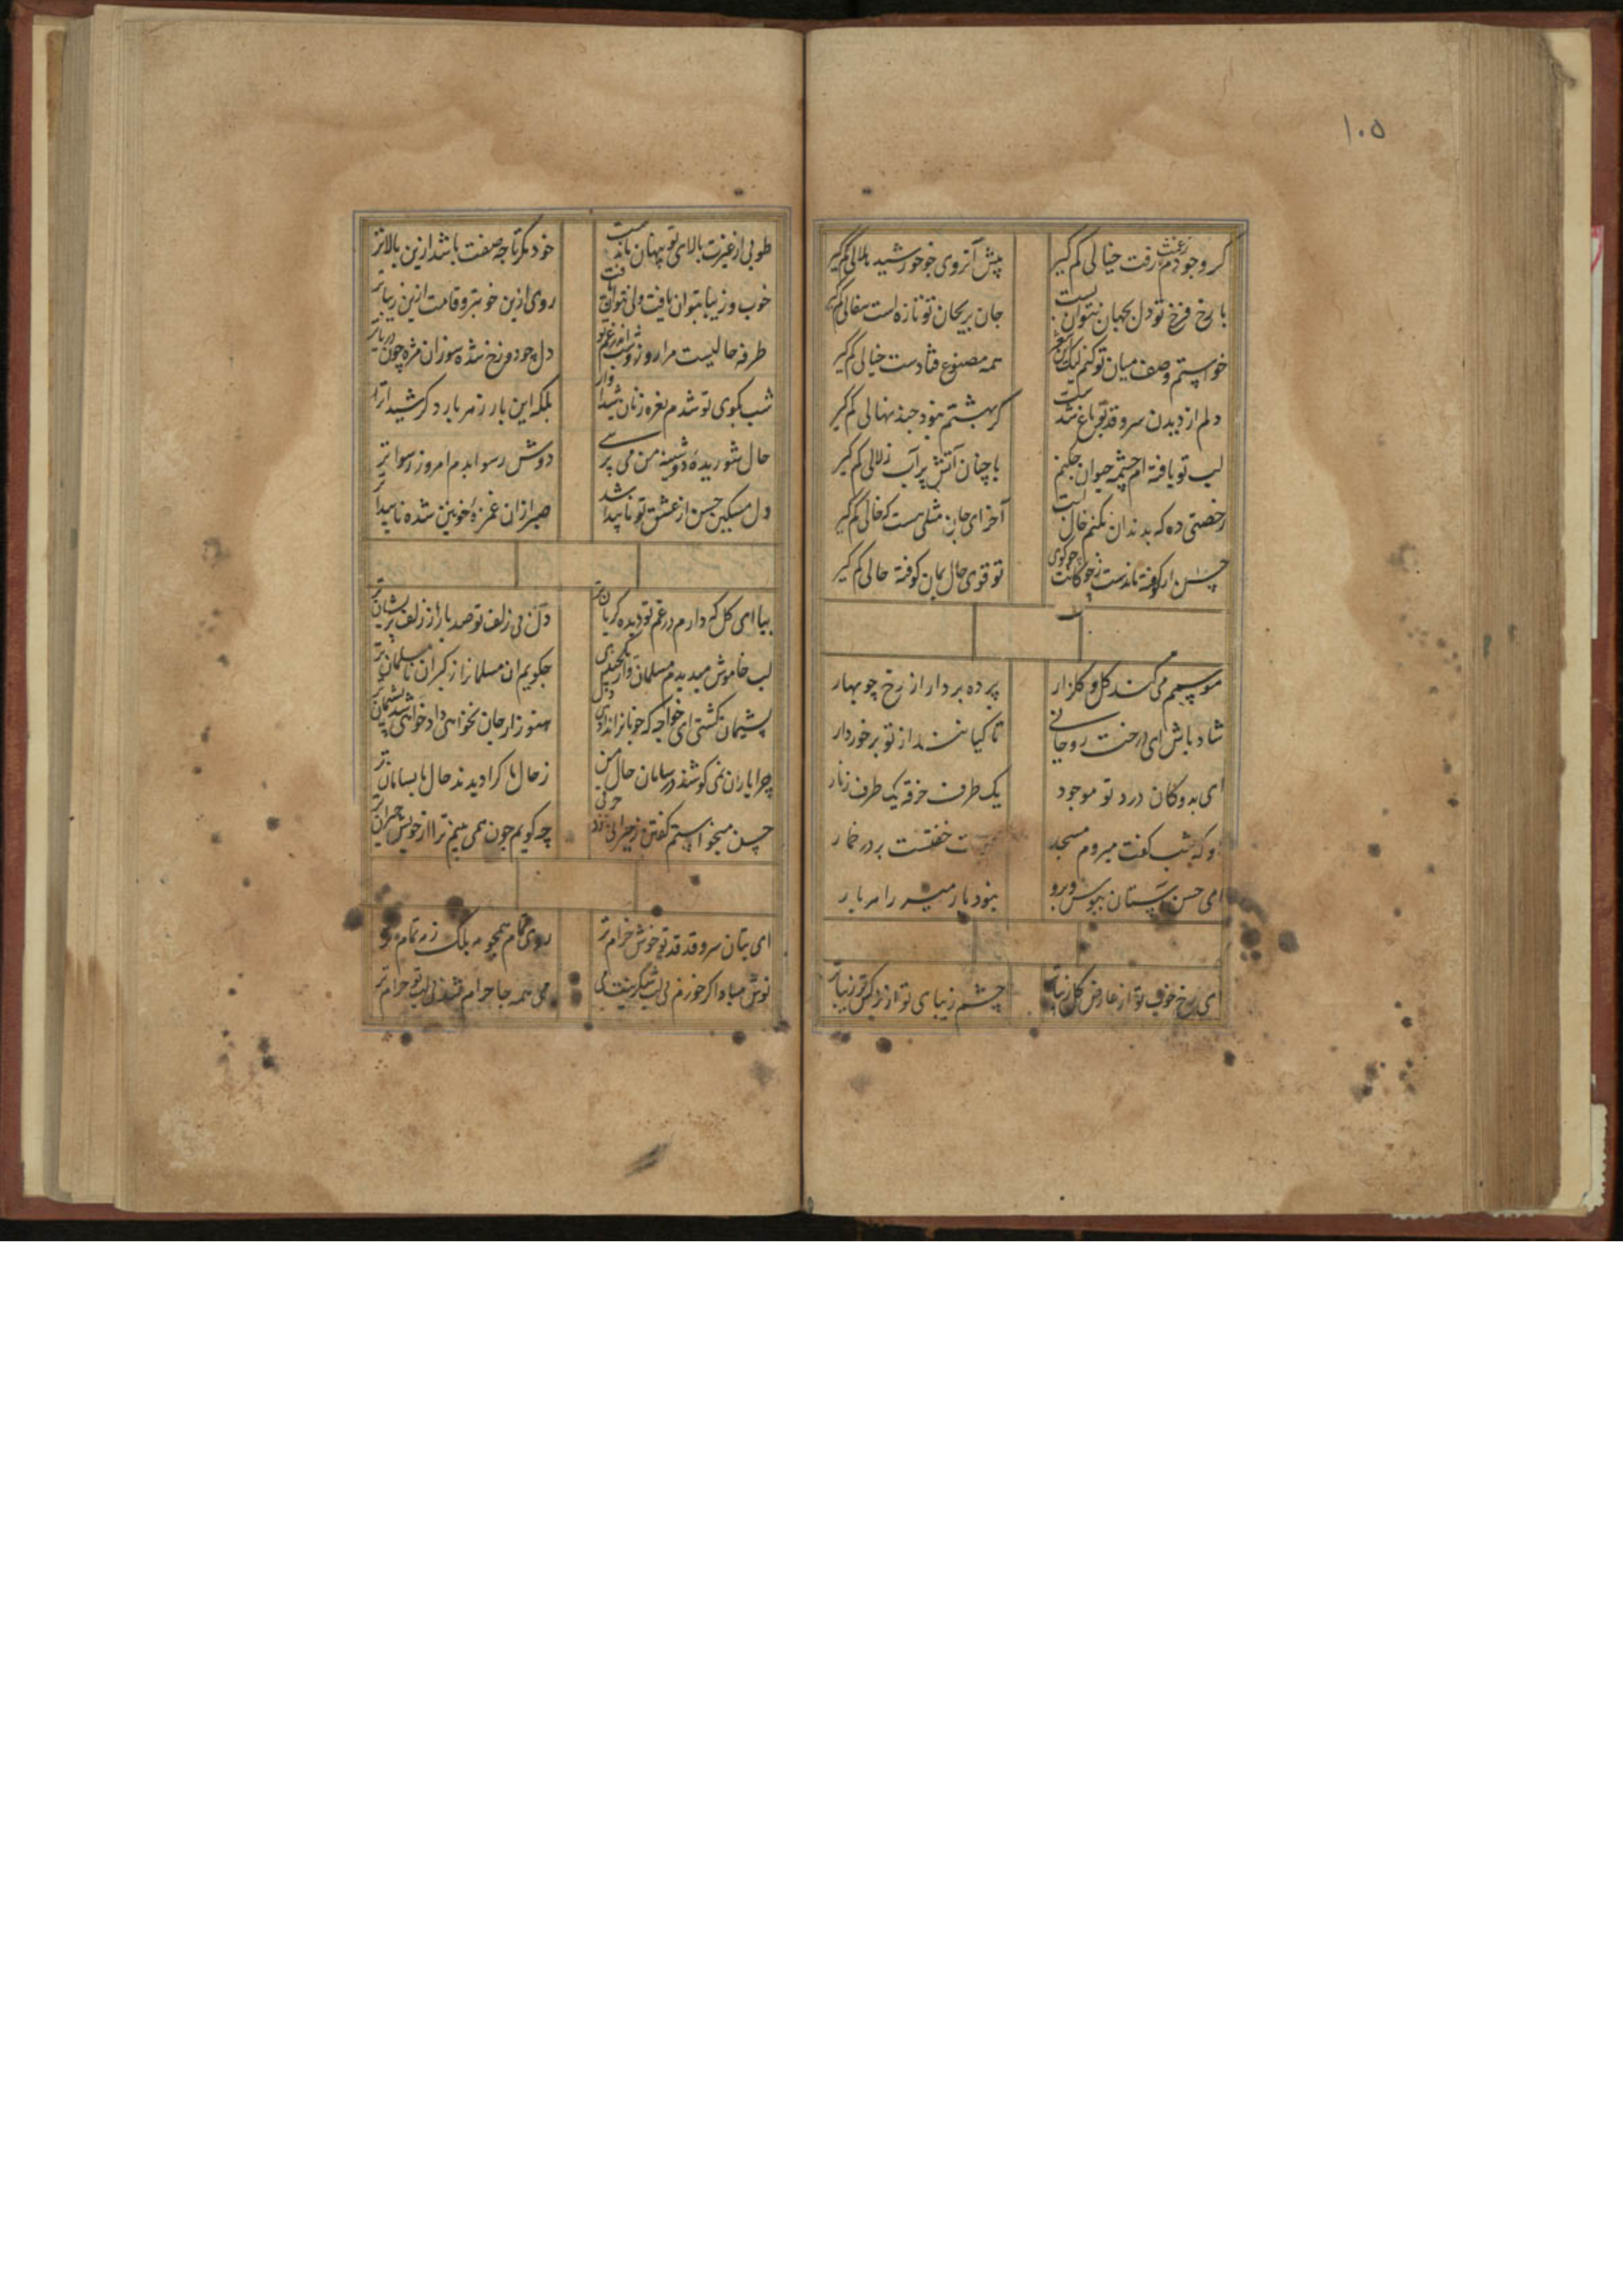 ۱۰۵
گر وجودم ز غمت رفت خیالی کم گیر
پیش آن روی چو خورشید هلالی کم گیر
با رخ فرخ تو دل بجهان نتوان بست
جان بریحان تو تازه است سفالی کم گیر
خواستم وصف میان تو کنم لیک
همه مصنوع فتادست خیالی کم گیر
دلم از دیدن سرو قد تو باغ شدست
گر بهشتم نبود چند نهالی کم گیر
لب تو یافته ام چشمه حیوان چکنم
با چنان آتش پر آب زلالی کم گیر
رخصتی ده که بدندان بکنم خال لبت
آخر ای جان مثلی هست که خالی کم گیر
حسن ار کوفته ماندست ز چوگانت چو گوی
تو قوی حال بمان کوفته حالی کم گیر
موسم می کند گل و گلزار
پرده بردار از رخ چو بهار
شاد باش ای درخت روحانی
تا کیانند از تو برخوردار
ای بدوکان درد تو موجود
یک طرف خرقه یک طرف زنار
وکه شب گفت میروم مسجد
خفتست بر در خمار
ای حسن آستان ببوس و برو
نبود بار میر را بر یار
ای رخ خوب تو از عارض گل زیباتر
چشم زیبای تو از نرگس تر زیباتر
طوبی از غیرت بالای تو پنهان ماندست
خود مگر تا چه صفت باشد ازین بالاتر
خوب و زیبا بتوان یافت ولی نتوان یافت
روی ازین خوبتر و قامت ازین زیباتر
طرفه حالیست مرا روز و شب اندر غم تو
دل چو دوزخ شده سوزان مژه چون دریاتر
شب بکوی تو شدم نعره زنان شیداوار
بلکه این بار ز هر بار دگر شیداتر
حال شوریده دوشینه من می پرسی
دوش رسوا بدم امروز رسواتر
دل مسکین حسن از عشق تو ناپیدا شد
صبر ازان غمزه خونین شده ناپیداتر
بیا ای گل که دارم در غم تو دیده گریان تر
دل من بی زلف تو صد بار از زلفت پریشان تر
لب خاموش میدیدم مسلمان وار
چگویم آن مسلمانرا ز گبران نامسلمان تر
پشیمان گشتی ای خواجه که خوبانرا ندادی دل
هنوز ار جان نخواهی داد خواهی شد پشیمان تر
چرا یاران نمی کوشند در سامان حال من
ز حال ما کرا دیدند حال نابسامان تر
حسن میخواستم گفتن ز حیرانی
چه گویم چون همی بینم ترا از خویش حیران تر
ای بتان سرو قد قد تو خوش خرام تر
روی تمام همچو مه بلک ز مه تمام تر
نوش مباد اگر خورم بی لب شکرینت می
می همه جا حرام شد بی لب تو حرام تر